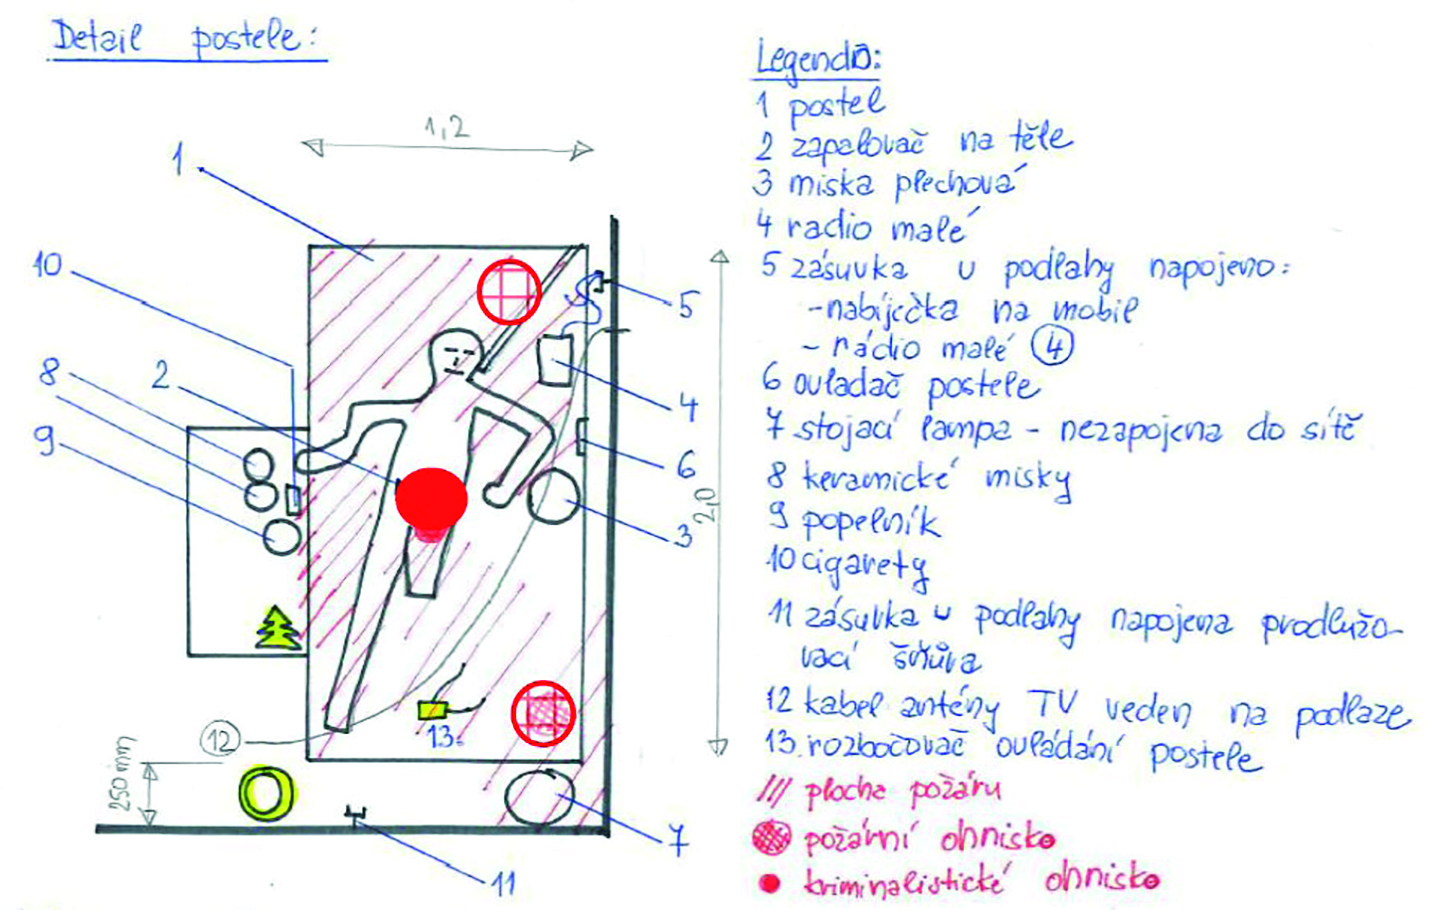 Detail postele:
1,2
1
10
8
2
9
5
4
6
3
2,0
13.
12
250 mm
7
11
Legenda:
1 postel
2 zapalovač na těle
3 miska plechová
4 radio malé
5 zásuvka u podlahy napojeno:
-nabíječka na mobil
- rádio malé 4
6 ovladač postele
7 stojací lampa - nezapojena do sítě
8 keramické misky
9 popelník
10 cigarety
11 zásuvka u podlahy napojena prodlužo-
vací šňůra
12 kabel antény TV veden na podlaze
13. rozbočovač ovládání postele
/// plocha požáru
požární ohnisko
kriminalistické ohnisko